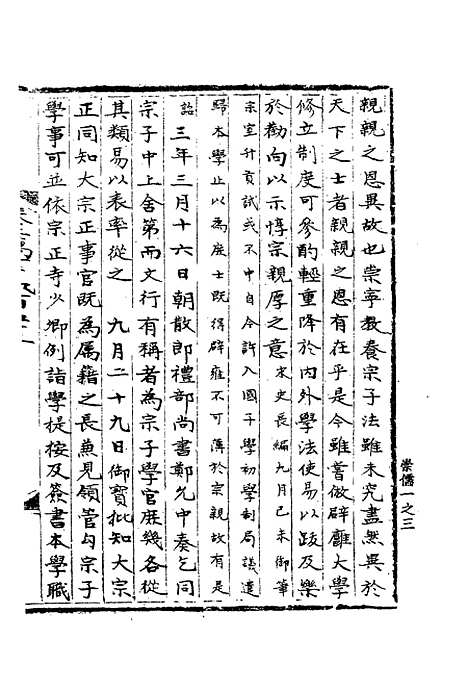 崇儒一之三
親親之恩異故也崇寧教養宗子法雖未究盡然異於
天下之士者親親之恩有在乎是今雖嘗倣辟廱大學
修立制度可參酌輕重降於內外學法使易以跂及樂
於勸向以示惇宗親厚之意宋史長編九月己未御筆
宗室升貢試或不中自今許入國子學初學制局議遣
歸本學止以為庶士既得辟雍不可薄於宗親故有是
詔三年三月十六日朝散郎禮部尚書鄭允中奏乞同
宗子中上舍第而文行有稱者為宗子學官庶幾各從
其類易以表率從之 九月二十九日御寶批知大宗
正同知大宗正事官既為屬籍之長兼見領管勾宗子
學事可並依宗正寺少卿例詣學提按及簽書本學職